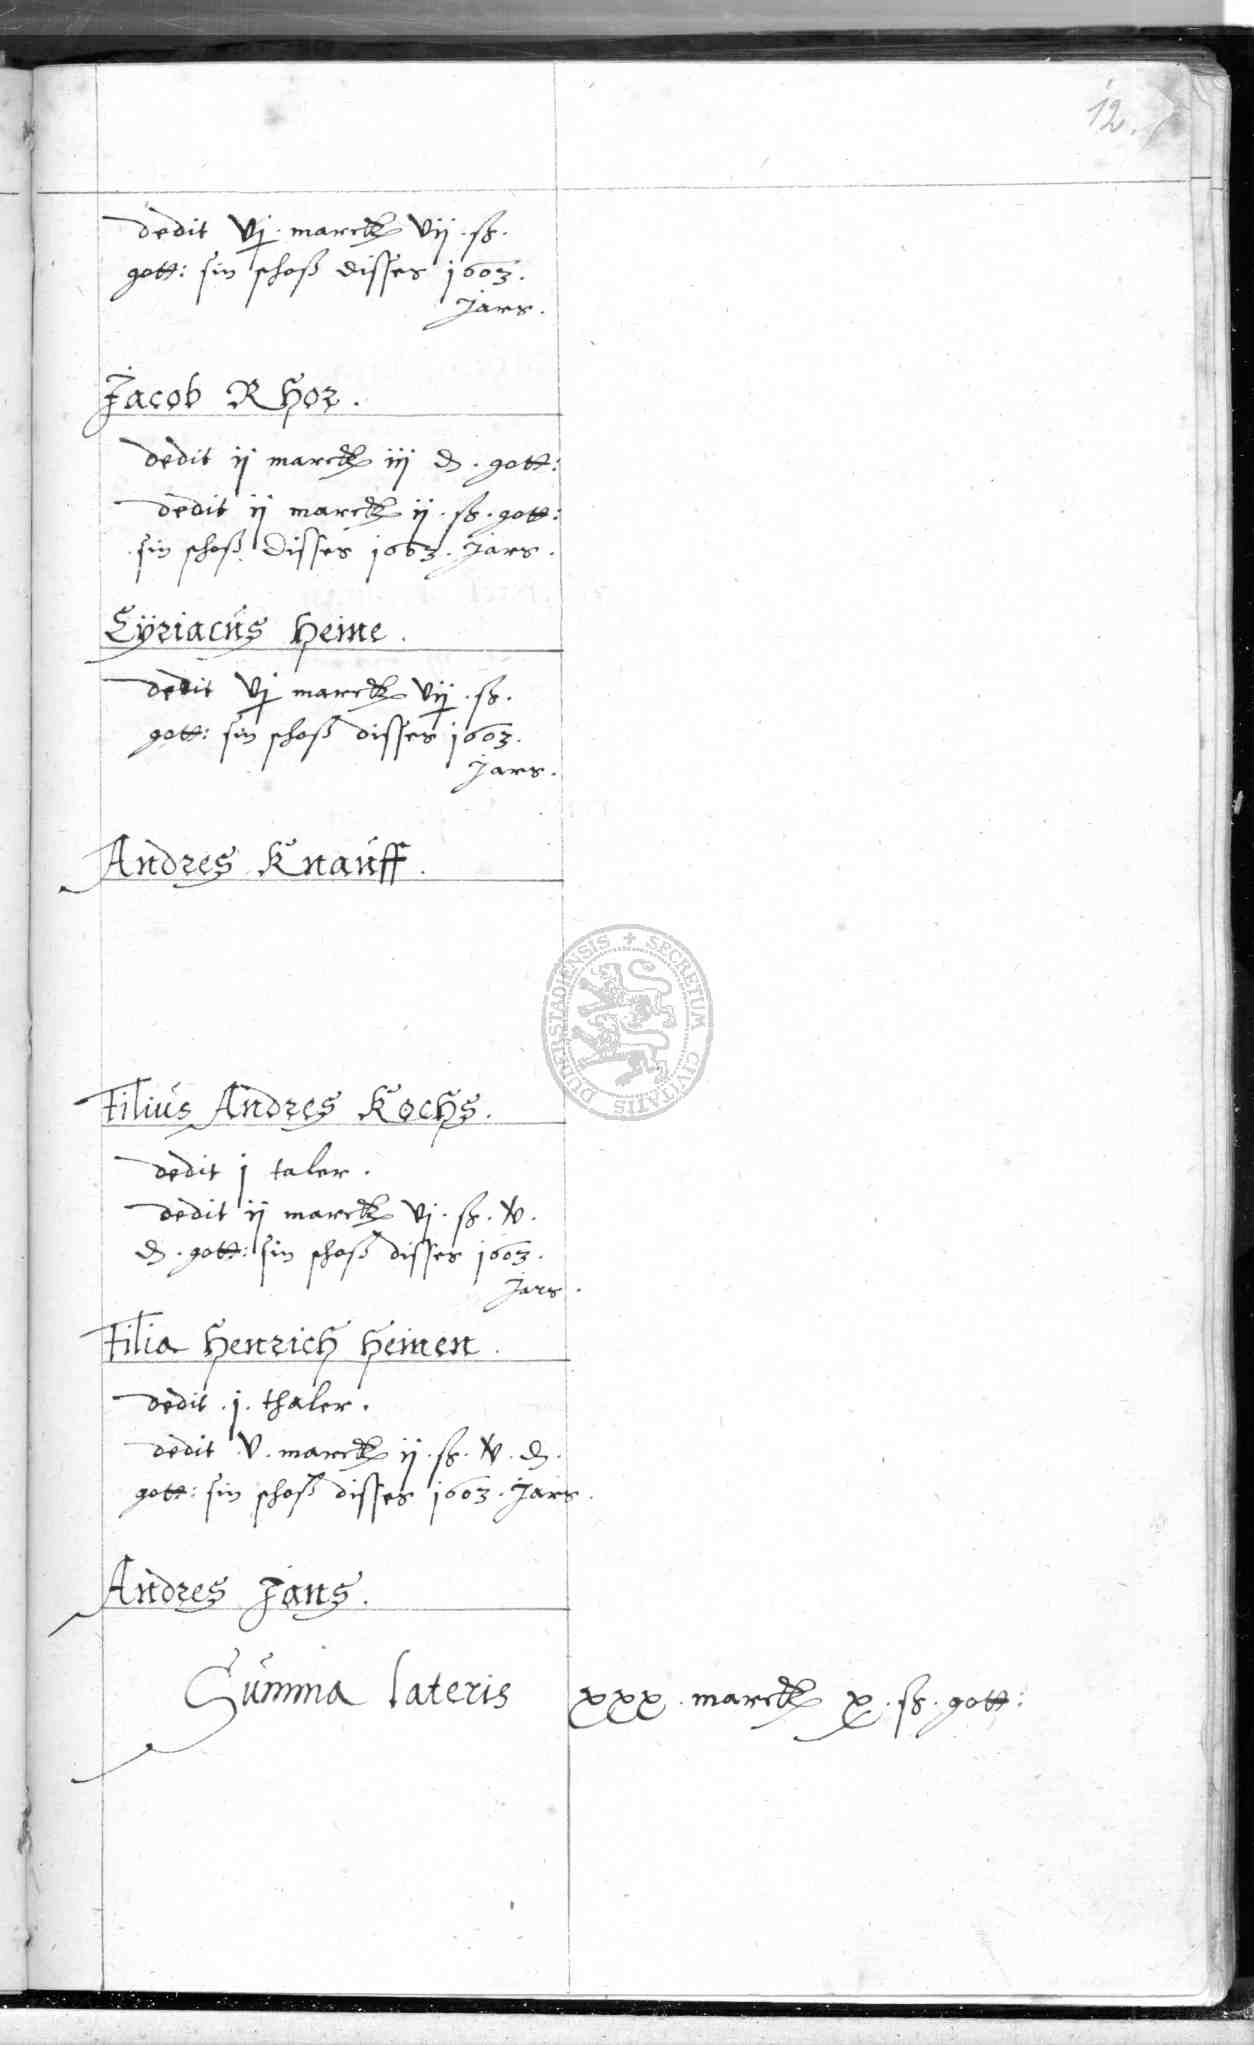 12.
dedit vj. marck vij. ß.
gott: sin schoß disses 1603.
Jars.
Jacob Rhor.
dedit ij marck iij d. gott:
dedit ij marck ij. ß. gott:
sin schoß disses 1603. Jars.
Cÿriacus Heine.
dedit vj marck vij. ß.
gott: sin schoß disses 1603.
Jars.
Andres Knauff.
DUDERSTADIENSIS + SECRETUM CIVITATIS
Filius Andres Kochs.
dedit j taler.
dedit ij marck vj. ß.
d. gott: sin schoß disses 1603.
Jars.
Filia Henrich Heinen.
dedit. j. thaler.
dedit v. marck ij. ß. d.
gott: sin schoß disses 1603. Jars.
Andres Jans.
Summa lateris xxx. marck x. ß. gott: